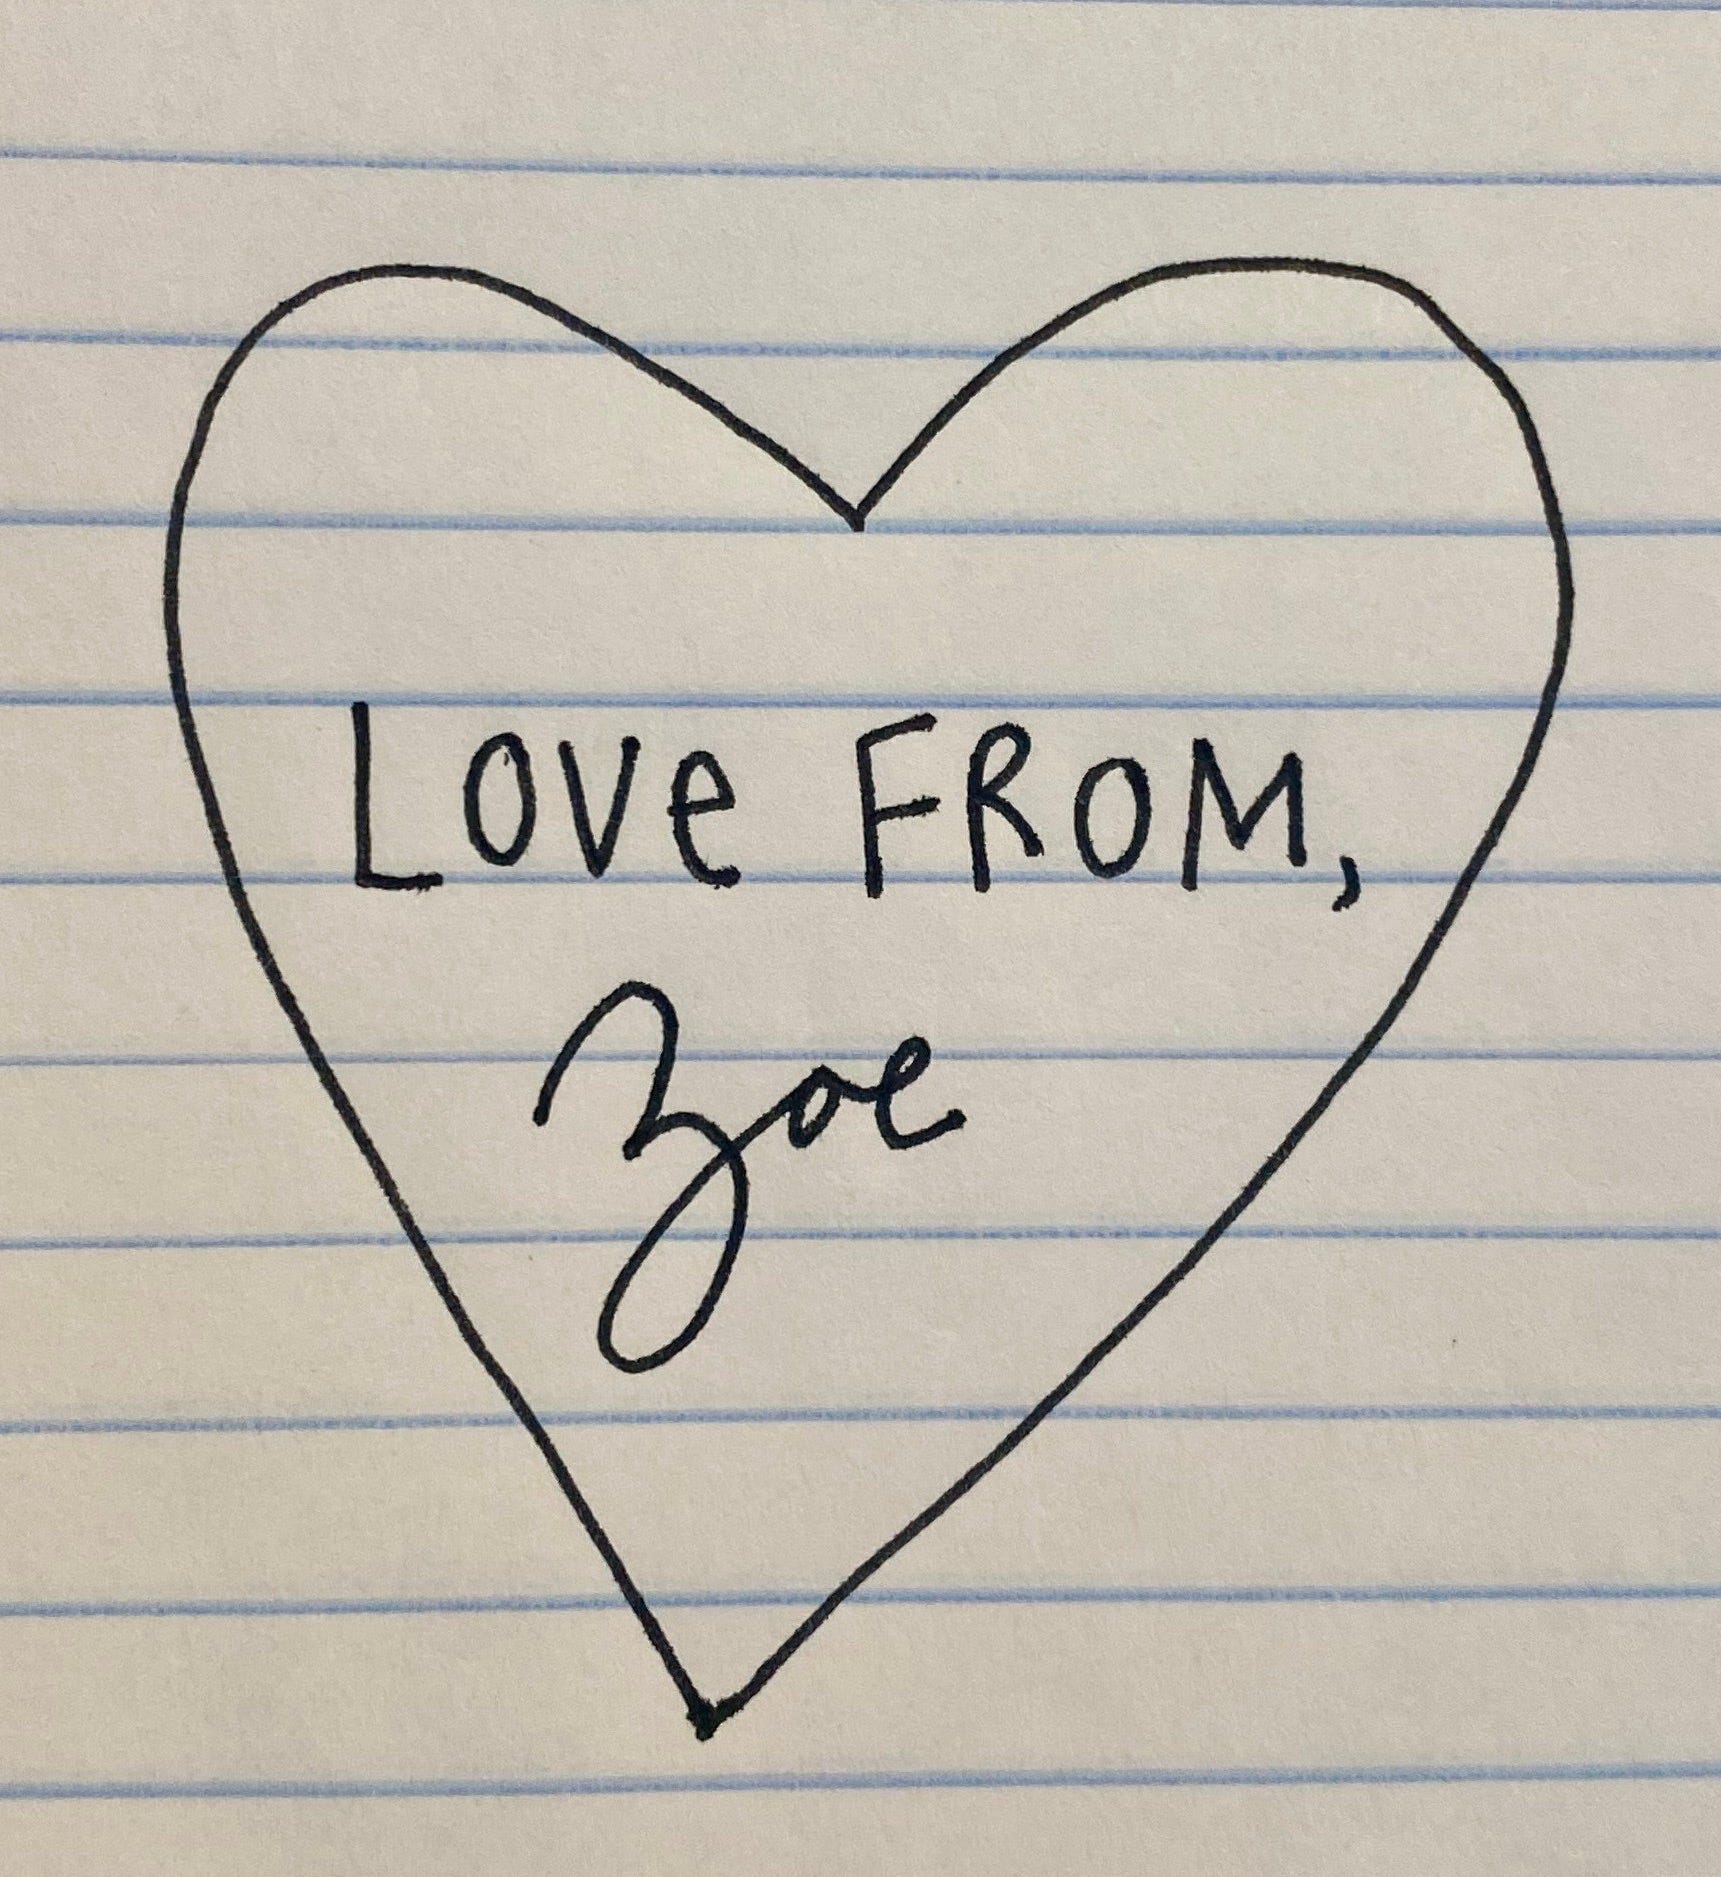 Love FROM,
Zoe